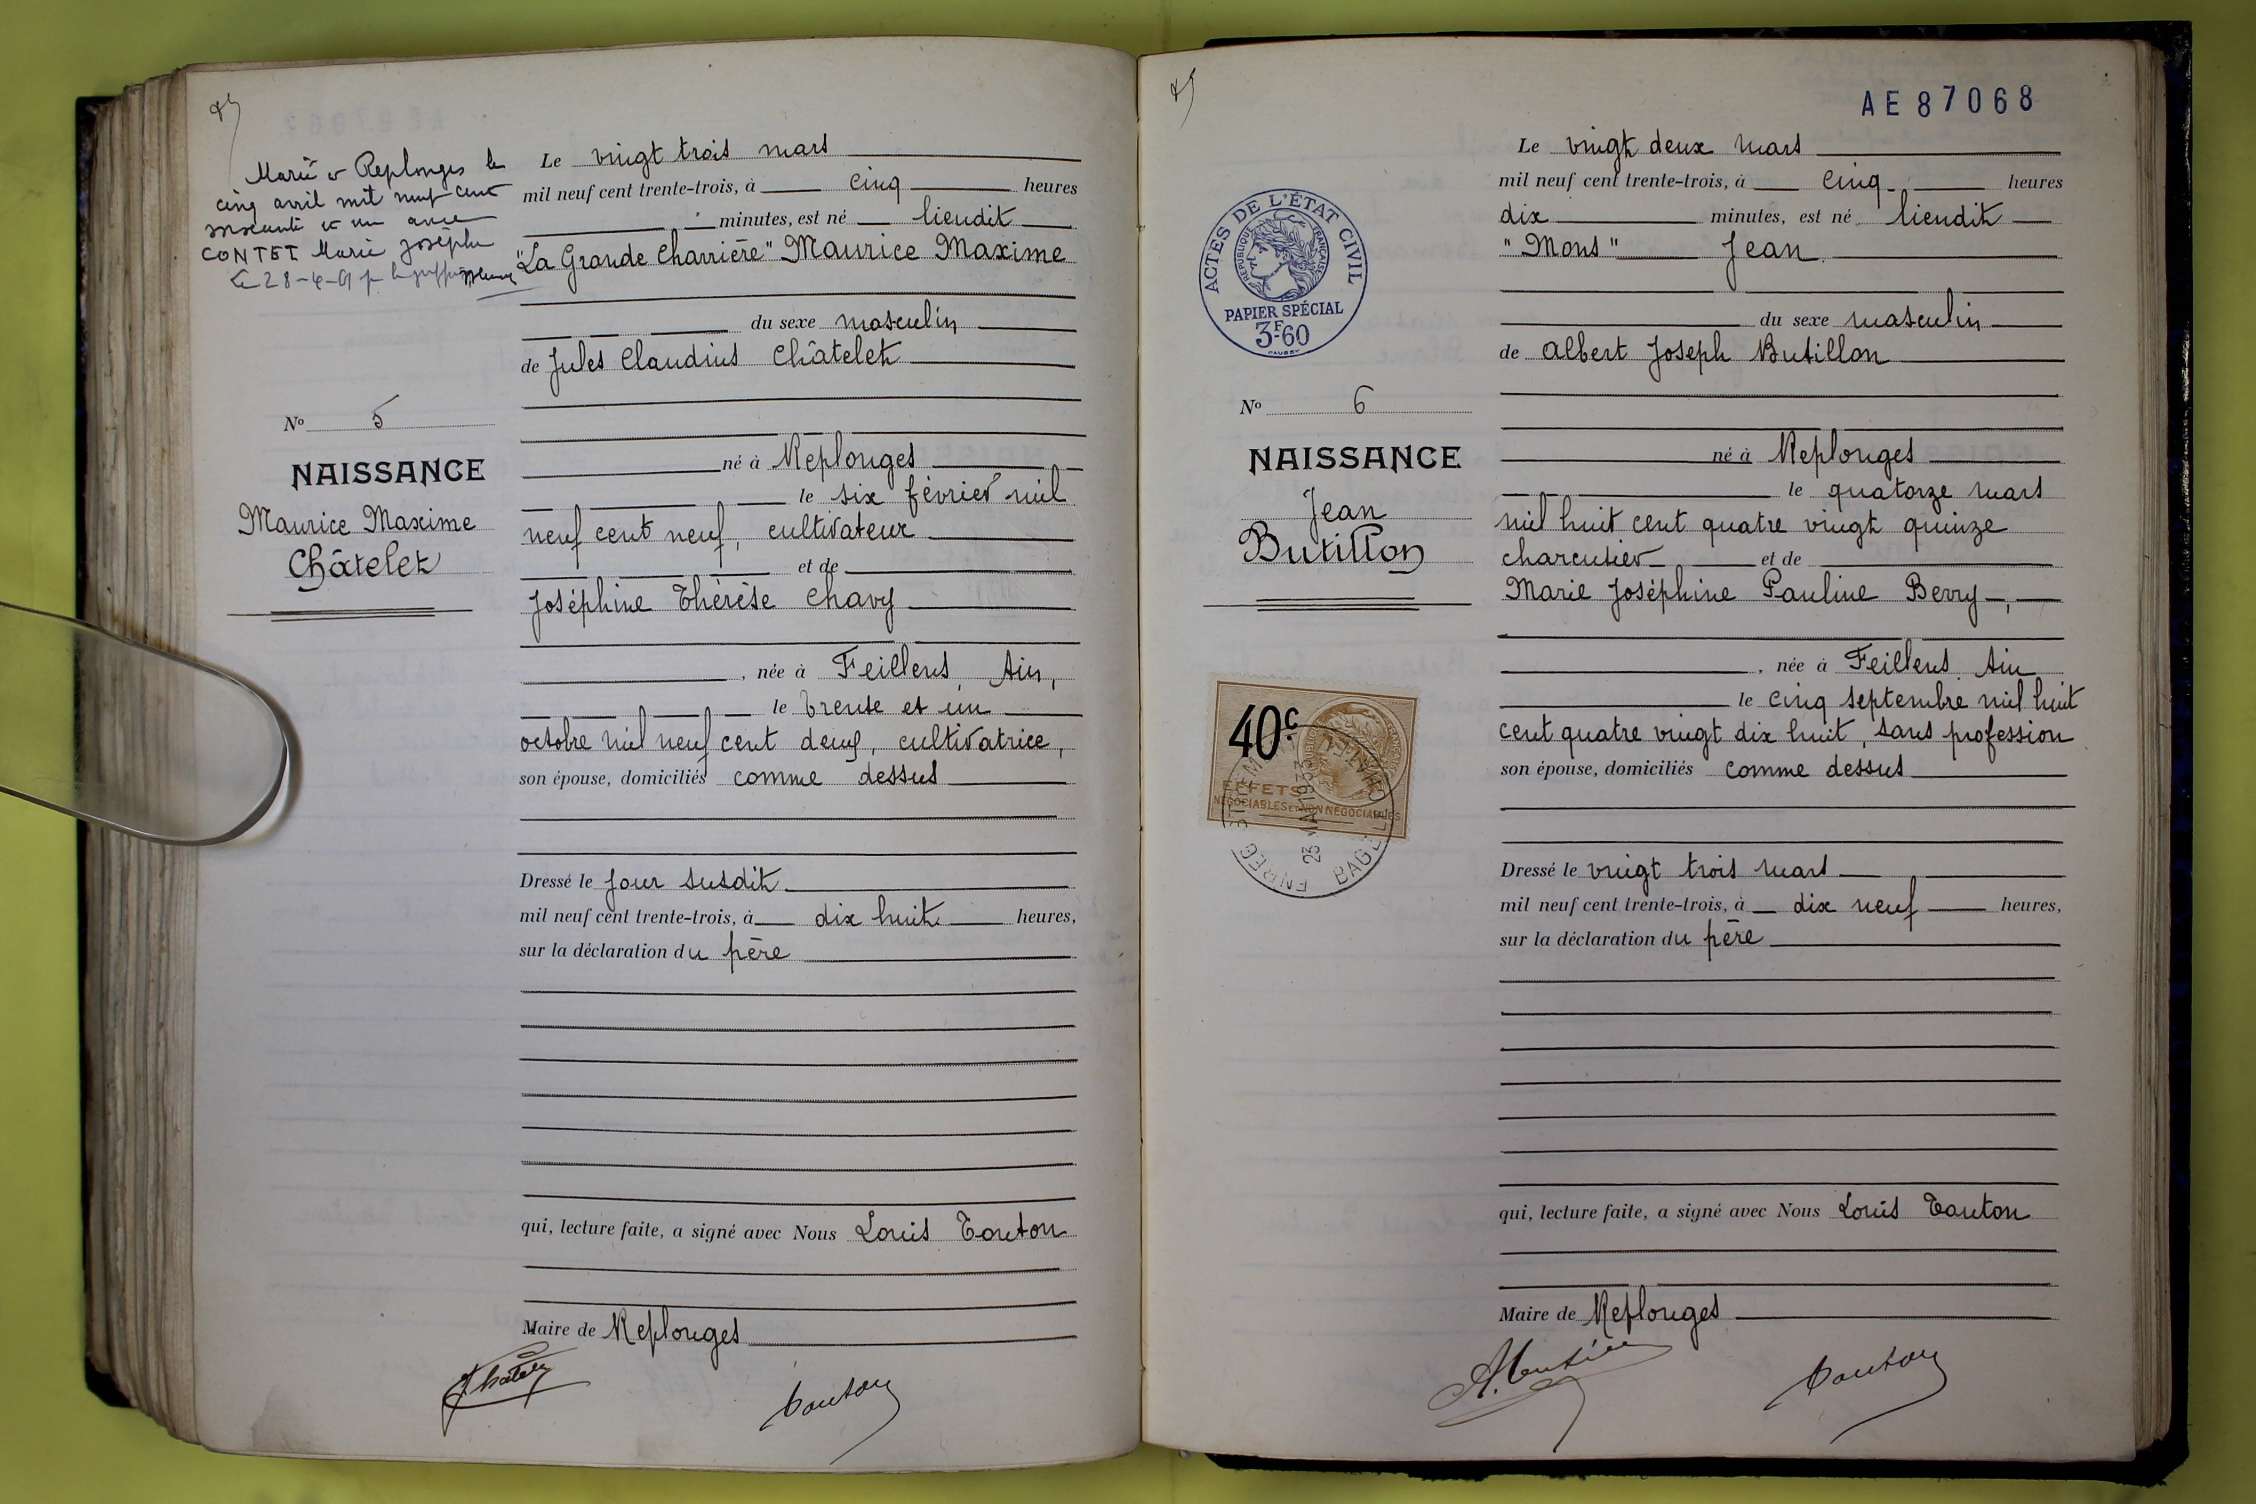 Marié à Replonges le
cinq avril mil neuf cent
soixante et un avec
CONTET Marie Josèphe
Le 28-4-61
N° 5
NAISSANCE
Maurice Maxime
Châtelet
Le vingt trois mars
mil neuf cent trente-trois, à cinq heures
minutes, est né lieudit
"La Grande Charrière" Maurice Maxime
du sexe masculin
de Jules Claudius Châtelet
né à Replonges
le six février mil
neuf cent neuf, cultivateur
et de
Joséphine Thérèse Chavy
, née à Feillens, Ain,
le trente et un
octobre mil neuf cent deux, cultivatrice,
son épouse, domiciliés comme dessus
Dressé le jour susdit
mil neuf cent trente-trois, à dix huit heures,
sur la déclaration du père
qui, lecture faite, a signé avec Nous Louis Touton
Maire de Replonges
Touton
AE87068
ACTES DE L'ÉTAT CIVIL
RÉPUBLIQUE FRANÇAISE
PAPIER SPÉCIAL
3F.60
N° 6
NAISSANCE
Jean
Butillon
40c
EFFETS
NÉGOCIABLES ET NON NÉGOCIABLES
23 MA 1933
Le vingt deux mars
mil neuf cent trente-trois, à cinq heures
dix minutes, est né lieudit
"Mons" Jean
du sexe masculin
de Albert Joseph Butillon
né à Replonges
le quatorze mars
mil huit cent quatre vingt quinze
charcutier et de
Marie Joséphine Pauline Berry,
, née à Feillens Ain
le cinq septembre mil huit
cent quatre vingt dix huit, sans profession
son épouse, domiciliés comme dessus
Dressé le vingt trois mars
mil neuf cent trente-trois, à dix neuf heures,
sur la déclaration du père
qui, lecture faite, a signé avec Nous Louis Touton
Maire de Replonges
Touton